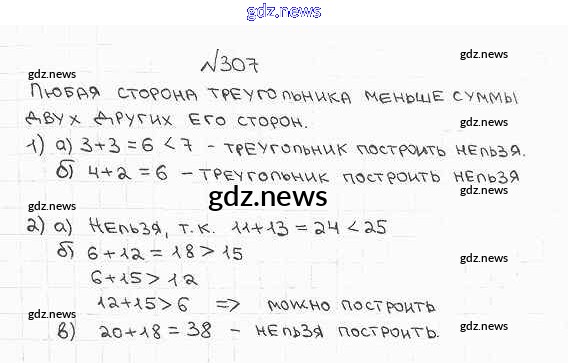 gdz.news
№307
gdz.news
gdz.news
Любая сторона треугольника меньше суммы
двух других его сторон.
gdz.news
1) а) 3+3=6<7 - треугольник построить нельзя.
б) 4+2=6 - треугольник построить нельзя
gdz.news
gdz.news
gdz.news
2) а) Нельзя, т.к. 11+13=24<25
б) 6+12=18>15
gdz.news
6+15>12
12+15>6 => можно построить
gdz.news
в) 20+18=38 - нельзя построить.
gdz.news